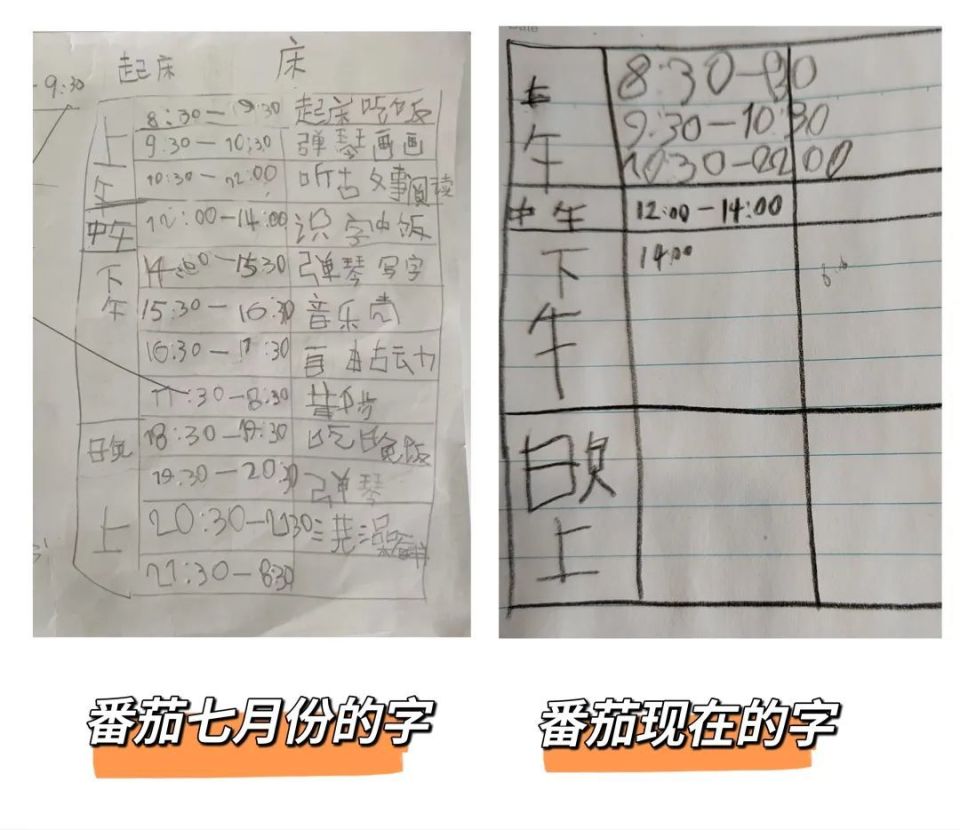 起床 床
9:30
上午
8:30—9:30 起床吃饭
9:30—10:30 弹琴画画
10:30—12:00 听古文事阅读
中午 12:00—14:00 识字中饭
下午 14:00—15:30 弹琴写字
15:30—16:30 音乐
16:30—17:30 自由
17:30—8:30
晚上 18:30—19:30 吃晚饭
19:30—20:30 弹琴
20:30—2130 洗澡
21:30—830
上午
8:30—
9:30—10:30
10:30—
中午 12:00—14:00
下午 14:00
晚上
番茄七月份的字
番茄现在的字